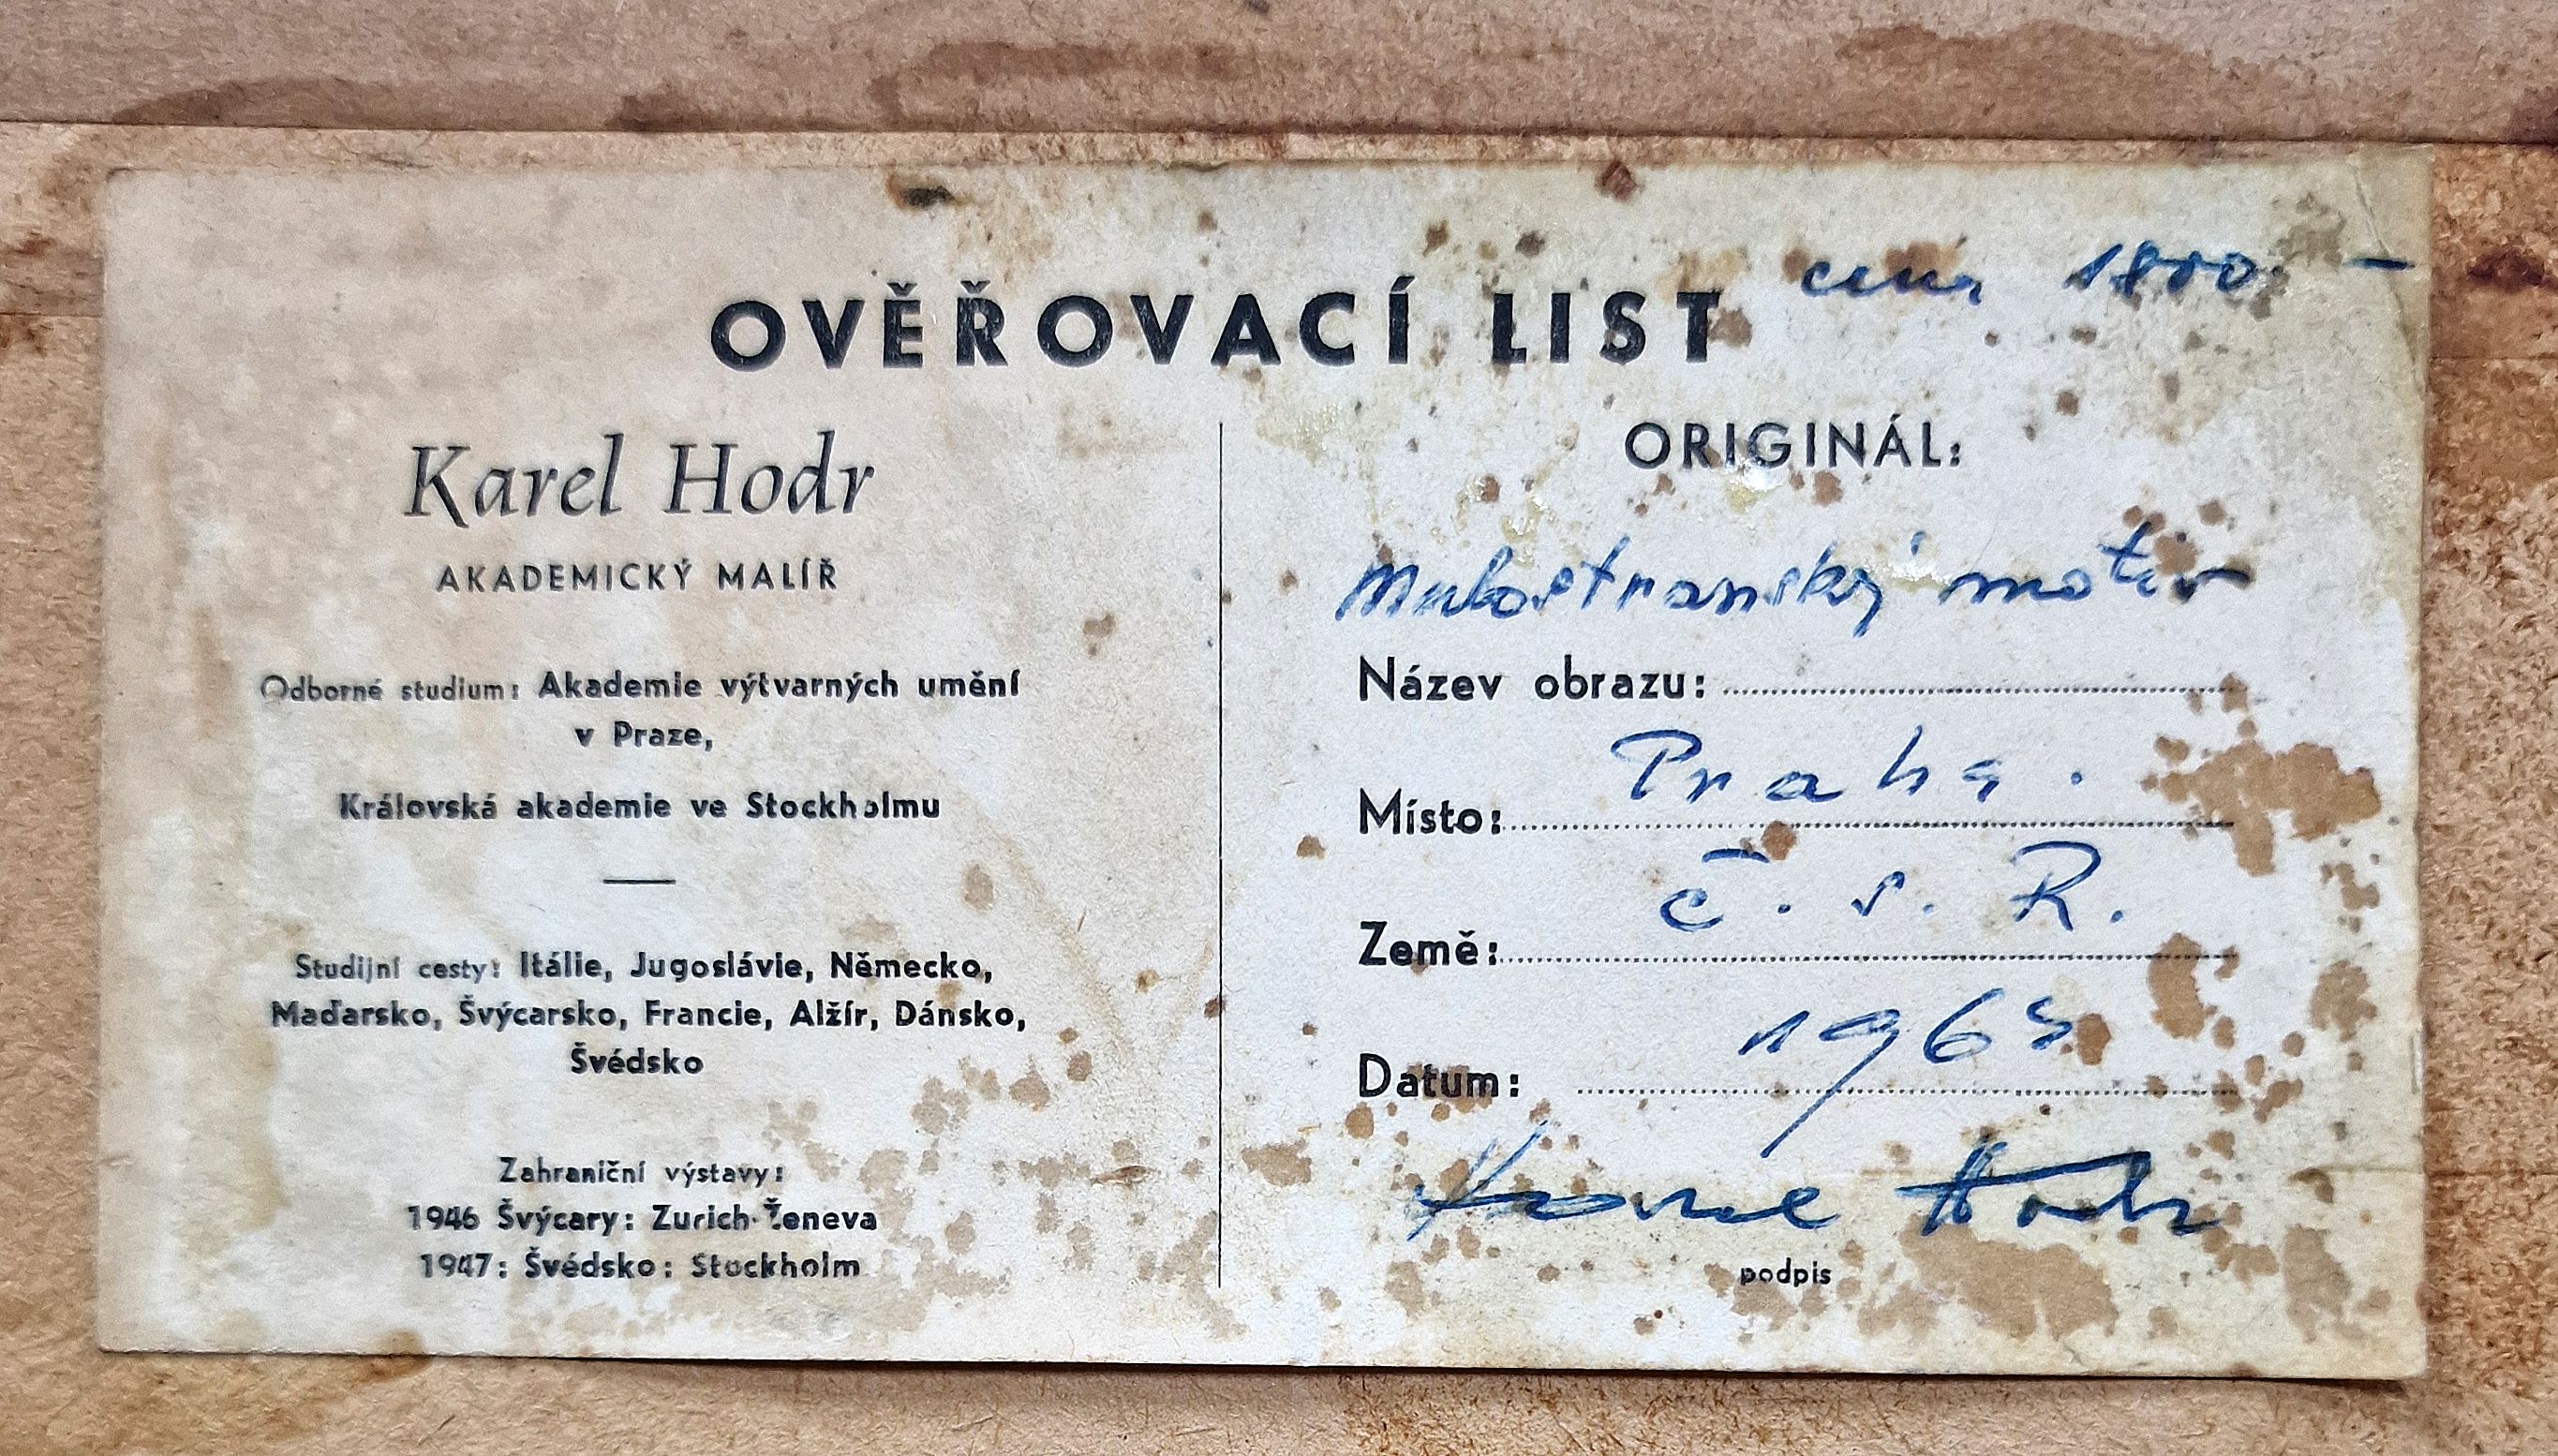 OVĚŘOVACÍ LIST
cena 1800 –
Karel Hodr
AKADEMICKÝ MALÍŘ
Odborné studium: Akademie výtvarných umění
v Praze,
Královská akademie ve Stockholmu
Studijní cesty: Itálie, Jugoslávie, Německo,
Maďarsko, Švýcarsko, Francie, Alžír, Dánsko,
Švédsko
Zahraniční výstavy:
1946 Švýcary: Zurich-Ženeva
1947: Švédsko: Stockholm
ORIGINÁL:
Malostranský motiv
Název obrazu:
Praha.
Místo:
Č. s. R.
Země:
1965
Datum:
Karel Hodr
podpis